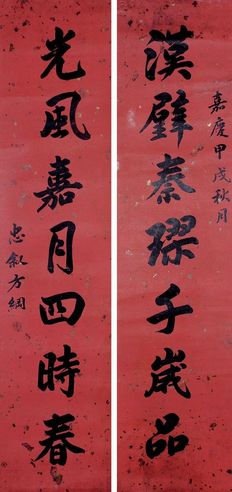 嘉慶甲戌秋月
漢璧秦璆千歲品
光風嘉月四時春
忠叙方綱